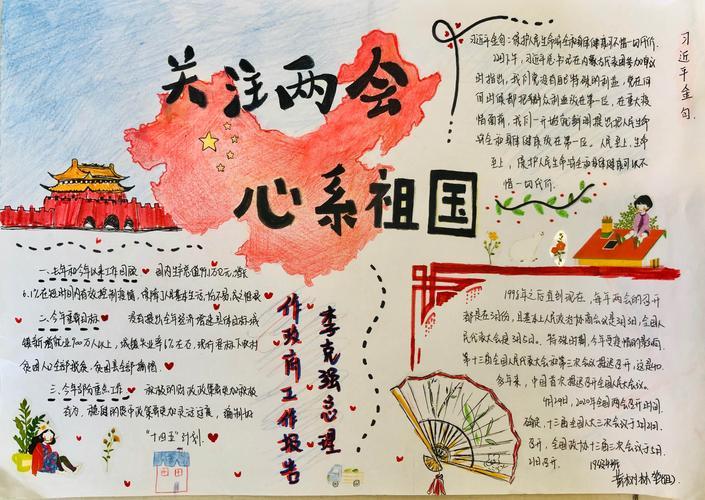 关注两会
心系祖国
习近平金句
习近平金句:保护人民生命安全和身体健康可不惜一切代价.
22日下午,习近平总书记在内蒙古代表团参加审议
时指出,我们党没有自己特殊的利益,党在任何
时候都把群众利益放在第一位,在重大疫
情面前,我们一开始就鲜明提出把人民生命
安全和身体健康放在第一位。人民至上,生命
至上,保护人民生命安全和身体健康可以不
惜一切代价.
一、去年和今年以来工作回顾 国内生产总值99.1万亿元,增长
6.1%
二、今年发展目标 没有提出全年经济增速具体目标.城
镇新增就业900万人以上,城镇失业率6%左右,现行标准下农村
贫困人口全部脱贫、贫困县全部摘帽.
三、今年部分重点工作 积极的财政政策要更加积极
有为,稳健的货币政策要更加灵活适度,编制好
“十四五”计划.
李克强总理
作政府工作报告
1995年之后直到现在,每年两会的召开
都是在3月份,且基本上人民政治协商会议是3月3日,全国人
民代表大会是3月5日。特殊时期,今年受疫情的影响,
第十三届全国人民代表大会和第三次会议推迟召开,这是40
多年来,中国首次推迟召开全国人民代表大会。
4月29日,2020年全国两会召开时间
确定,十三届全国人大三次会议于5月22日
召开,全国政协十三届三次会议于5月
21日召开.